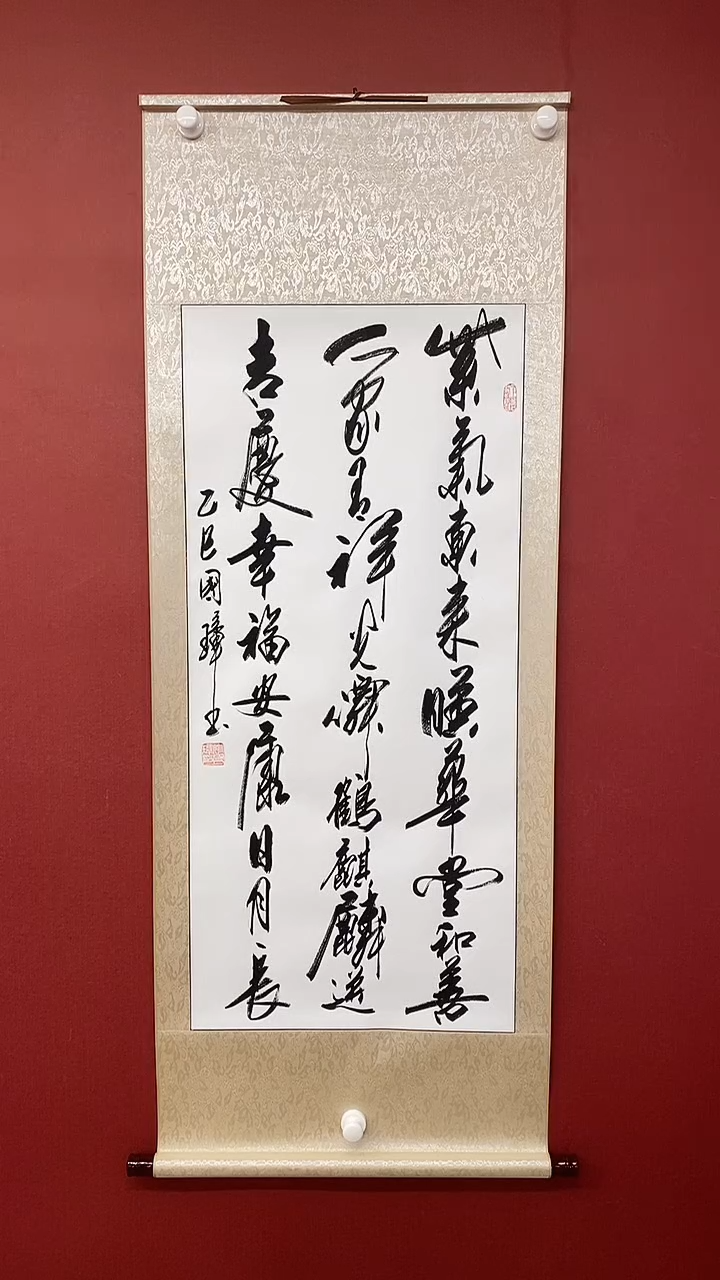 紫氣東來暎華堂和善
一家有祥光鶴麒麟送
吉慶幸福安康日月長
乙巳國璋书